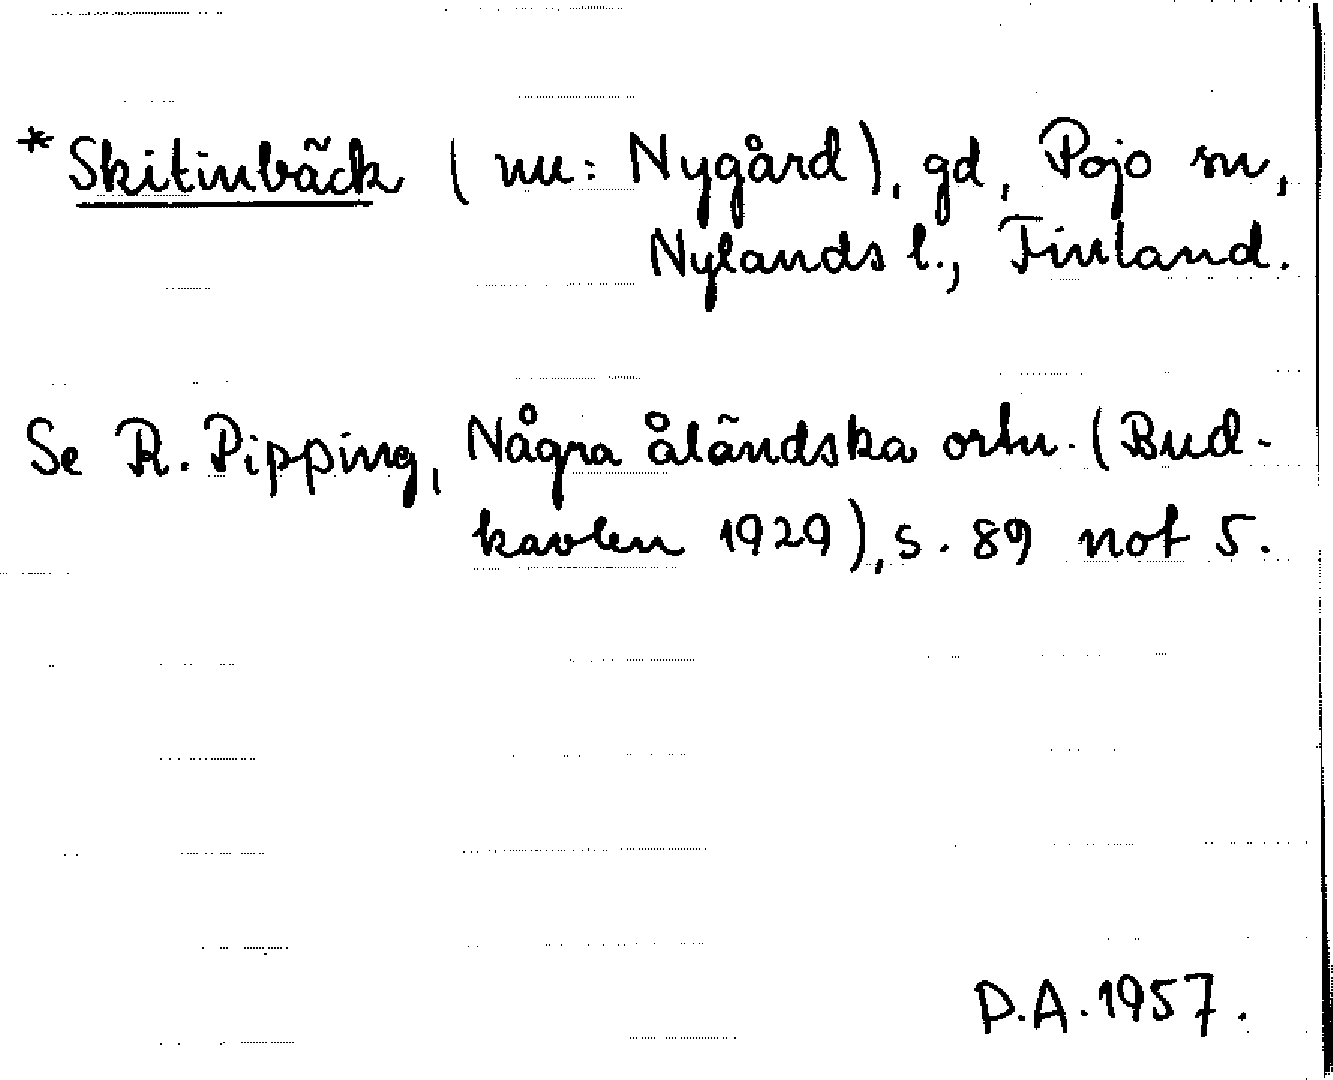 *Skitinbäck (nu: Nygård), gd, Pojo sn,
Nylands l., Finland.
Se R. Pipping, Några åländska ortn. (Bud-
kavlen 1929), s. 89 not 5.
D.A. 1957.